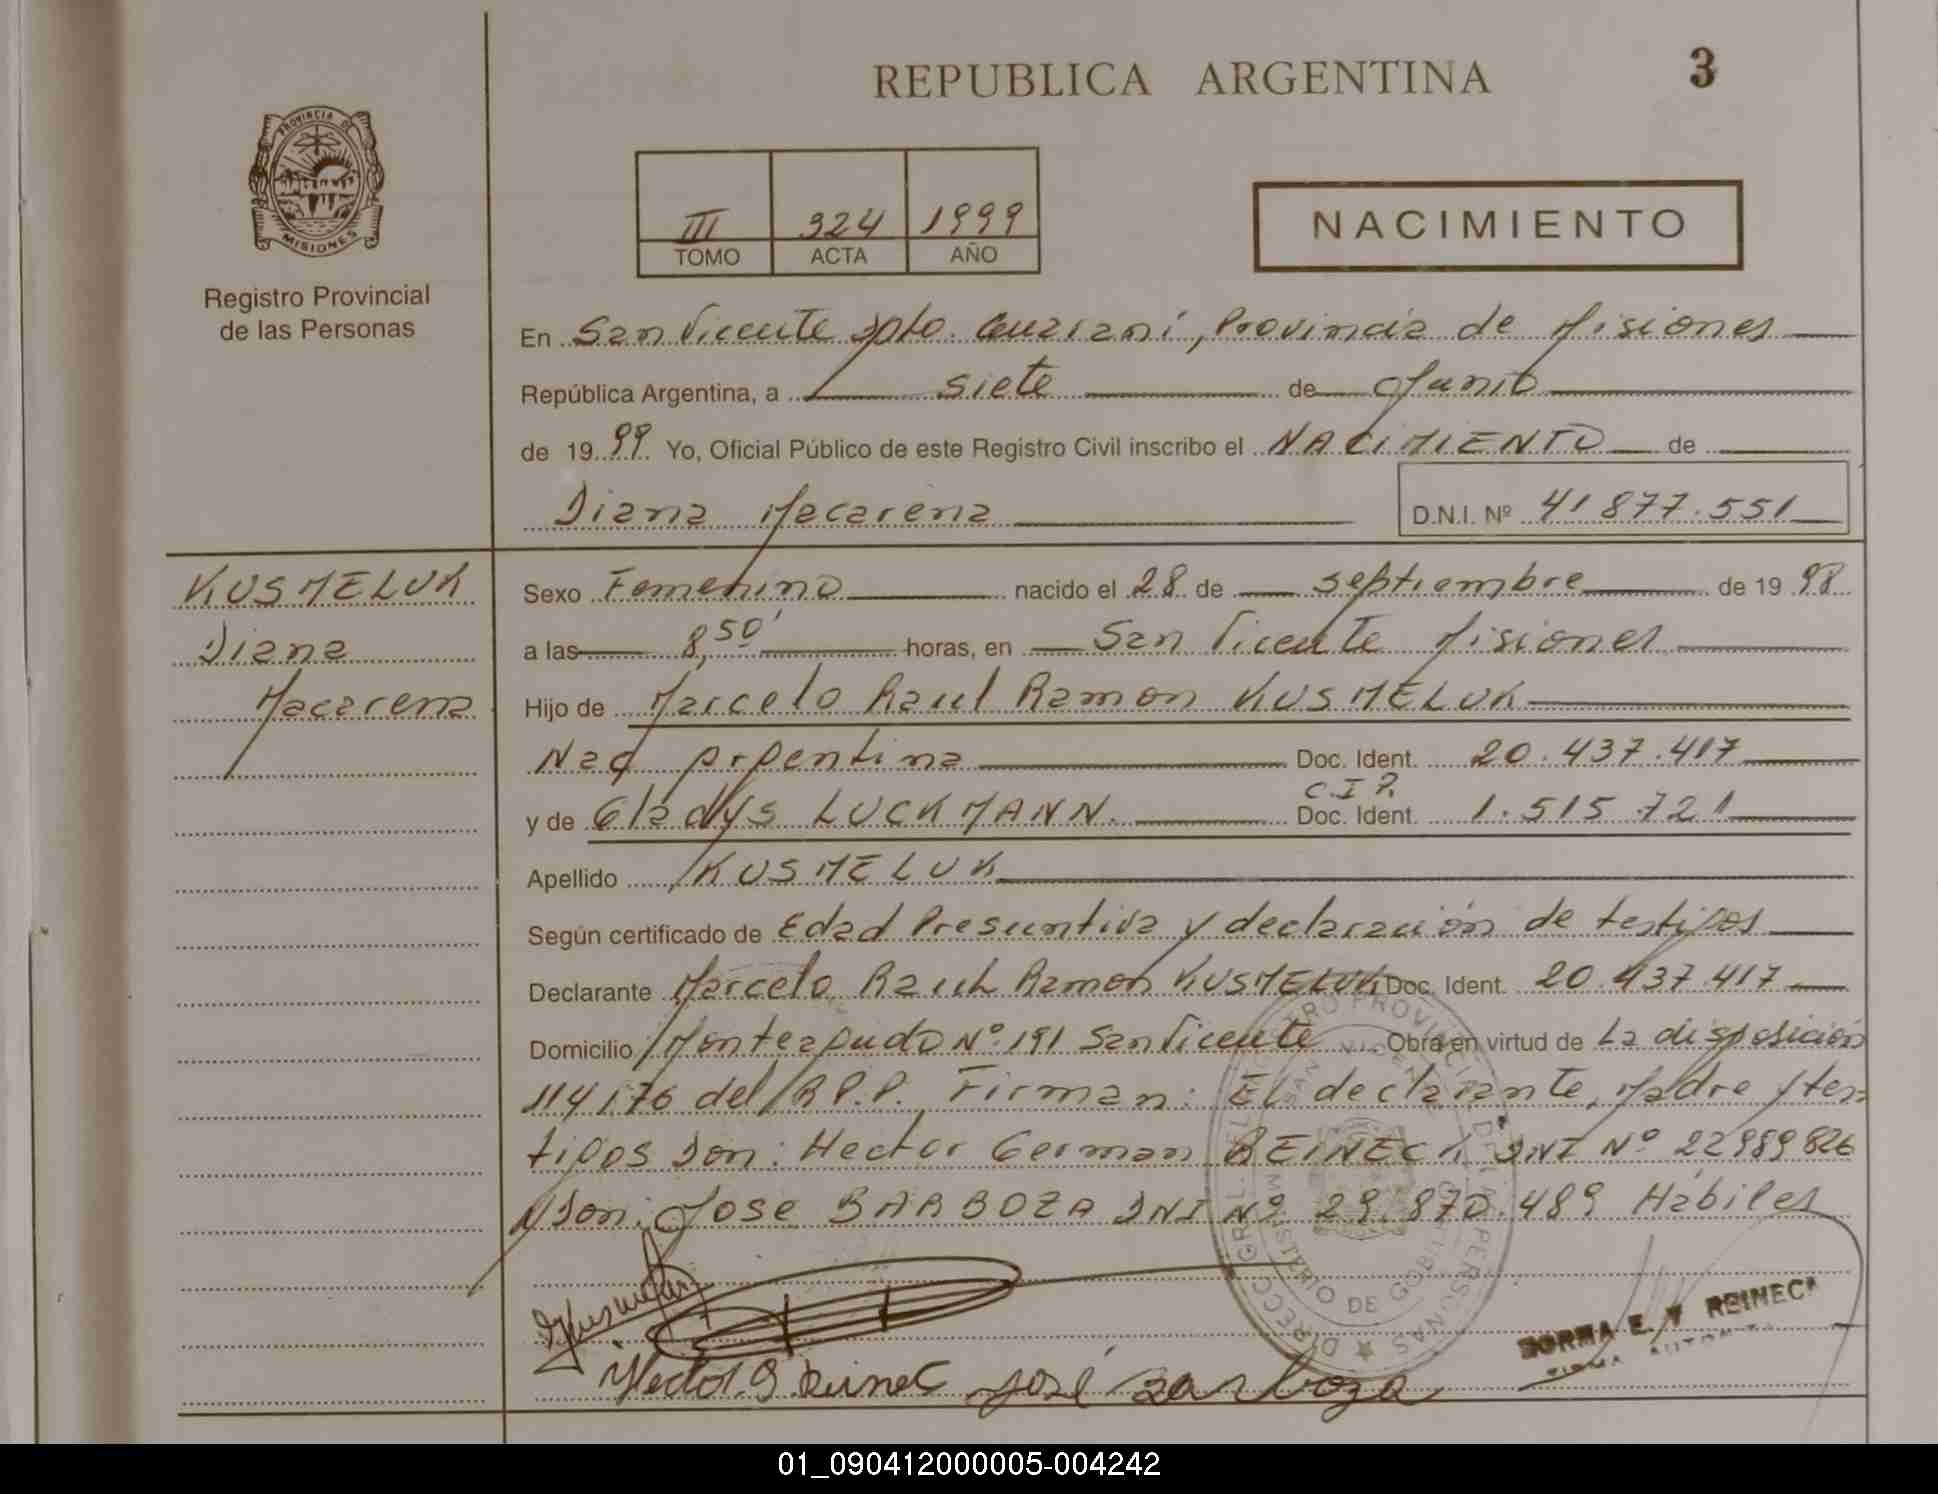 REPUBLICA ARGENTINA
3
PROVINCIA DE
MISIONES
Registro Provincial
de las Personas
III 324 1999
TOMO ACTA AÑO
NACIMIENTO
En San Vicente Dpto. Guaraní, Provincia de Misiones
República Argentina, a siete de Junio
de 1999 Yo, Oficial Público de este Registro Civil inscribo el NACIMIENTO de
Diana Macarena
D.N.I. Nº 41877.551
KUSMELUK
Diana
Macarena
Sexo Femenino nacido el 28 de septiembre de 1998
a las 8,50' horas, en San Vicente Misiones
Hijo de Marcelo Raul Ramon KUSMELUK
Nac Argentina Doc. Ident. 20.437.417
C.I.P.
y de Gladys LUCKMANN. Doc. Ident. 1.515.721
Apellido KUSMELUK
Según certificado de Edad Presuntiva y declaración de testigos
Declarante Marcelo Raul Ramon KUSMELUK Doc. Ident. 20.437.417
Domicilio Monteagudo Nº 191 San Vicente Obra en virtud de La disposición
114/76 del R.P.P. Firman: El declarante, Madre y tes
tigos Don: Hector German REINECK DNI Nº 22989826
y Don: Jose BARBOZA DNI Nº 29.870.489 Hábiles
DIRECC. GRAL. DEL REGISTRO PROVINCIAL DE LAS PERSONAS
SAN VICENTE
MINISTERIO DE GOBIERNO
Hector G. Reinec José Barboza
NORMA E. V REINECK
FIRMA AUTORIZADA
01_090412000005-004242